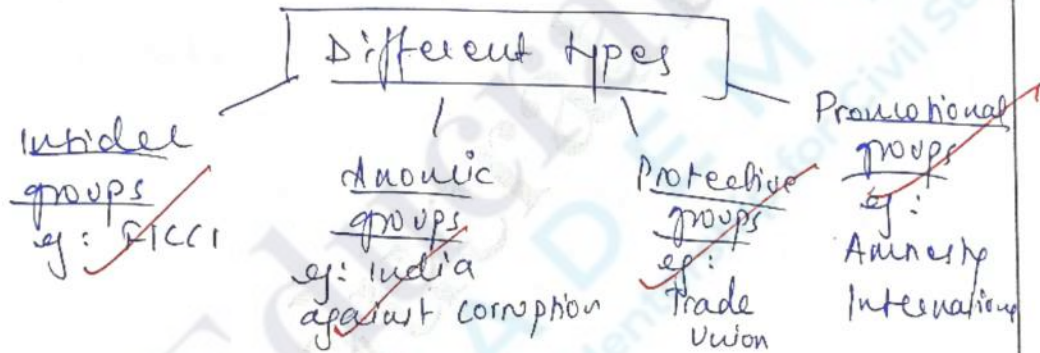 Different types
Insider
groups
eg: FICCI
Anomic
groups
eg: India
against corruption
Protective
groups
eg:
Trade
Union
Promotional
groups
eg:
Amnesty
International